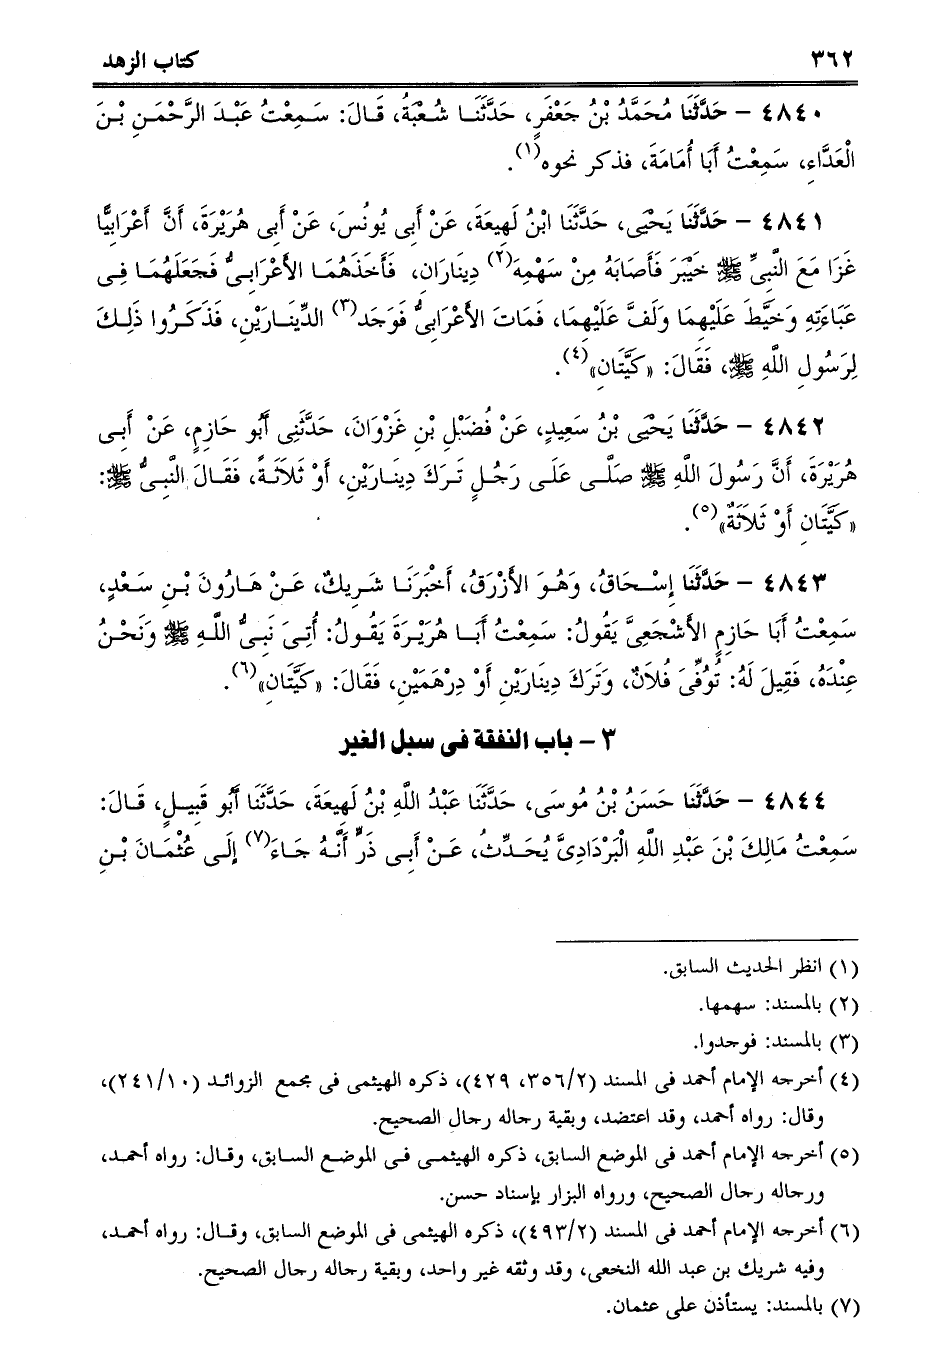 ٣٦٢ كتاب الزهد
٤٨٤٠ – حَدَّثَنَا مُحَمَّدُ بْنُ جَعْفَرٍ، حَدَّثَنَا شُعْبَةُ، قَالَ: سَمِعْتُ عَبْدَ الرَّحْمَنِ بْنَ
الْعَدَّاءِ، سَمِعْتُ أَبَا أُمَامَةَ، فذكر نحوه(١).
٤٨٤١ – حَدَّثَنَا يَحْيَى، حَدَّثَنَا ابْنُ لَهِيعَةَ، عَنْ أَبِى يُونُسَ، عَنْ أَبِى هُرَيْرَةَ، أَنَّ أَعْرَابِيًّا
غَزَا مَعَ النَّبِىِّ ﷺ خَيْبَرَ فَأَصَابَهُ مِنْ سَهْمِهِ(٢) دِينَارَانِ، فَأَخَذَهُمَا الأَعْرَابِىُّ فَجَعَلَهُمَا فِى
عَبَاءَتِهِ وَخَيَّطَ عَلَيْهِمَا وَلَفَّ عَلَيْهِمَا، فَمَاتَ الأَعْرَابِىُّ فَوَجَد(٣) الدِّينَارَيْنِ، فَذَكَرُوا ذَلِكَ
لِرَسُولِ اللَّهِ ﷺ، فَقَالَ: «كَيَّتَانِ»(٤).
٤٨٤٢ – حَدَّثَنَا يَحْيَى بْنُ سَعِيدٍ، عَنْ فُضَيْلِ بْنِ غَزْوَانَ، حَدَّثَنِى أَبُو حَازِمٍ، عَنْ أَبِى
هُرَيْرَةَ، أَنَّ رَسُولَ اللَّهِ ﷺ صَلَّى عَلَى رَجُلٍ تَرَكَ دِينَارَيْنِ، أَوْ ثَلاَثَةً، فَقَالَ النَّبِىُّ ﷺ:
«كَيَّتَانِ أَوْ ثَلاَثَةٌ»(٥).
٤٨٤٣ – حَدَّثَنَا إِسْحَاقُ، وَهُوَ الأَزْرَقُ، أَخْبَرَنَا شَرِيكٌ، عَنْ هَارُونَ بْنِ سَعْدٍ،
سَمِعْتُ أَبَا حَازِمٍ الأَشْجَعِىَّ يَقُولُ: سَمِعْتُ أَبَا هُرَيْرَةَ يَقُولُ: أُتِىَ نَبِىُّ اللَّهِ ﷺ وَنَحْنُ
عِنْدَهُ، فَقِيلَ لَهُ: تُوُفِّىَ فُلاَنٌ، وَتَرَكَ دِينَارَيْنِ أَوْ دِرْهَمَيْنِ، فَقَالَ: «كَيَّتَانِ»(٦).
٣ – باب النفقة فى سبل الخير
٤٨٤٤ – حَدَّثَنَا حَسَنُ بْنُ مُوسَى، حَدَّثَنَا عَبْدُ اللَّهِ بْنُ لَهِيعَةَ، حَدَّثَنَا أَبُو قَبِيلٍ، قَالَ:
سَمِعْتُ مَالِكَ بْنَ عَبْدِ اللَّهِ الْبَرْدَادِىَّ يُحَدِّثُ، عَنْ أَبِى ذَرٍّ أَنَّهُ جَاءَ(٧) إِلَى عُثْمَانَ بْنِ
(١) انظر الحديث السابق.
(٢) بالمسند: سهمها.
(٣) بالمسند: فوجدوا.
(٤) أخرجه الإمام أحمد فى المسند (٣٥٦/٢، ٤٢٩)، ذكره الهيثمى فى مجمع الزوائد (٢٤١/١٠)،
وقال: رواه أحمد، وقد اعتضد، وبقية رجاله رجال الصحيح.
(٥) أخرجه الإمام أحمد فى الموضع السابق، ذكره الهيثمى فى الموضع السابق، وقال: رواه أحمد،
ورجاله رجال الصحيح، ورواه البزار بإسناد حسن.
(٦) أخرجه الإمام أحمد فى المسند (٤٩٣/٢)، ذكره الهيثمى فى الموضع السابق، وقال: رواه أحمد،
وفيه شريك بن عبد الله النخعى، وقد وثقه غير واحد، وبقية رجاله رجال الصحيح.
(٧) بالمسند: يستأذن على عثمان.